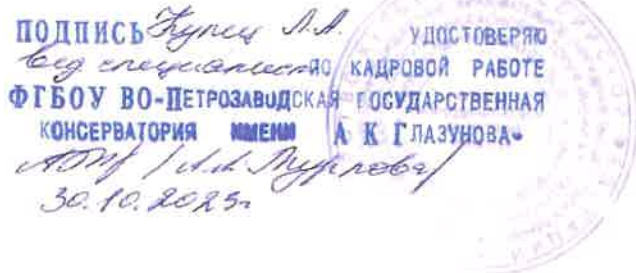 ПОДПИСЬ Купец Л.А. УДОСТОВЕРЯЮ
вед специалист ПО КАДРОВОЙ РАБОТЕ
ФГБОУ ВО-ПЕТРОЗАВОДСКАЯ ГОСУДАРСТВЕННАЯ
КОНСЕРВАТОРИЯ ИМЕНИ А К ГЛАЗУНОВА-
30.10.2025г